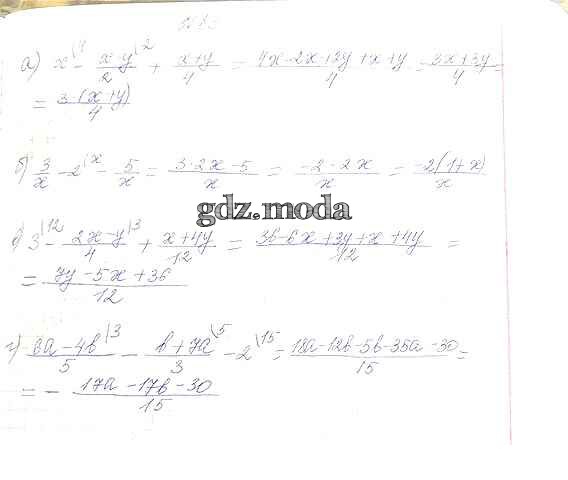 а) x\4 - x-y\2/2 + x+y/4 = 4x-2x+2y+x+y/4 = 3x+3y/4 =
= 3·(x+y)/4
б) 3/x - 2\x - 5/x = 3-2x-5/x = -2-2x/x = -2(1+x)/x
gdz.moda
в) 3\12 - 2x-y\3/4 + x+4y/12 = 36-6x+3y+x+4y/12 =
= 7y-5x+36/12
г) 6a-4b\3/5 - b+7a\5/3 - 2\15 = 18a-12b-5b-35a-30/15 =
= - 17a-17b-30/15